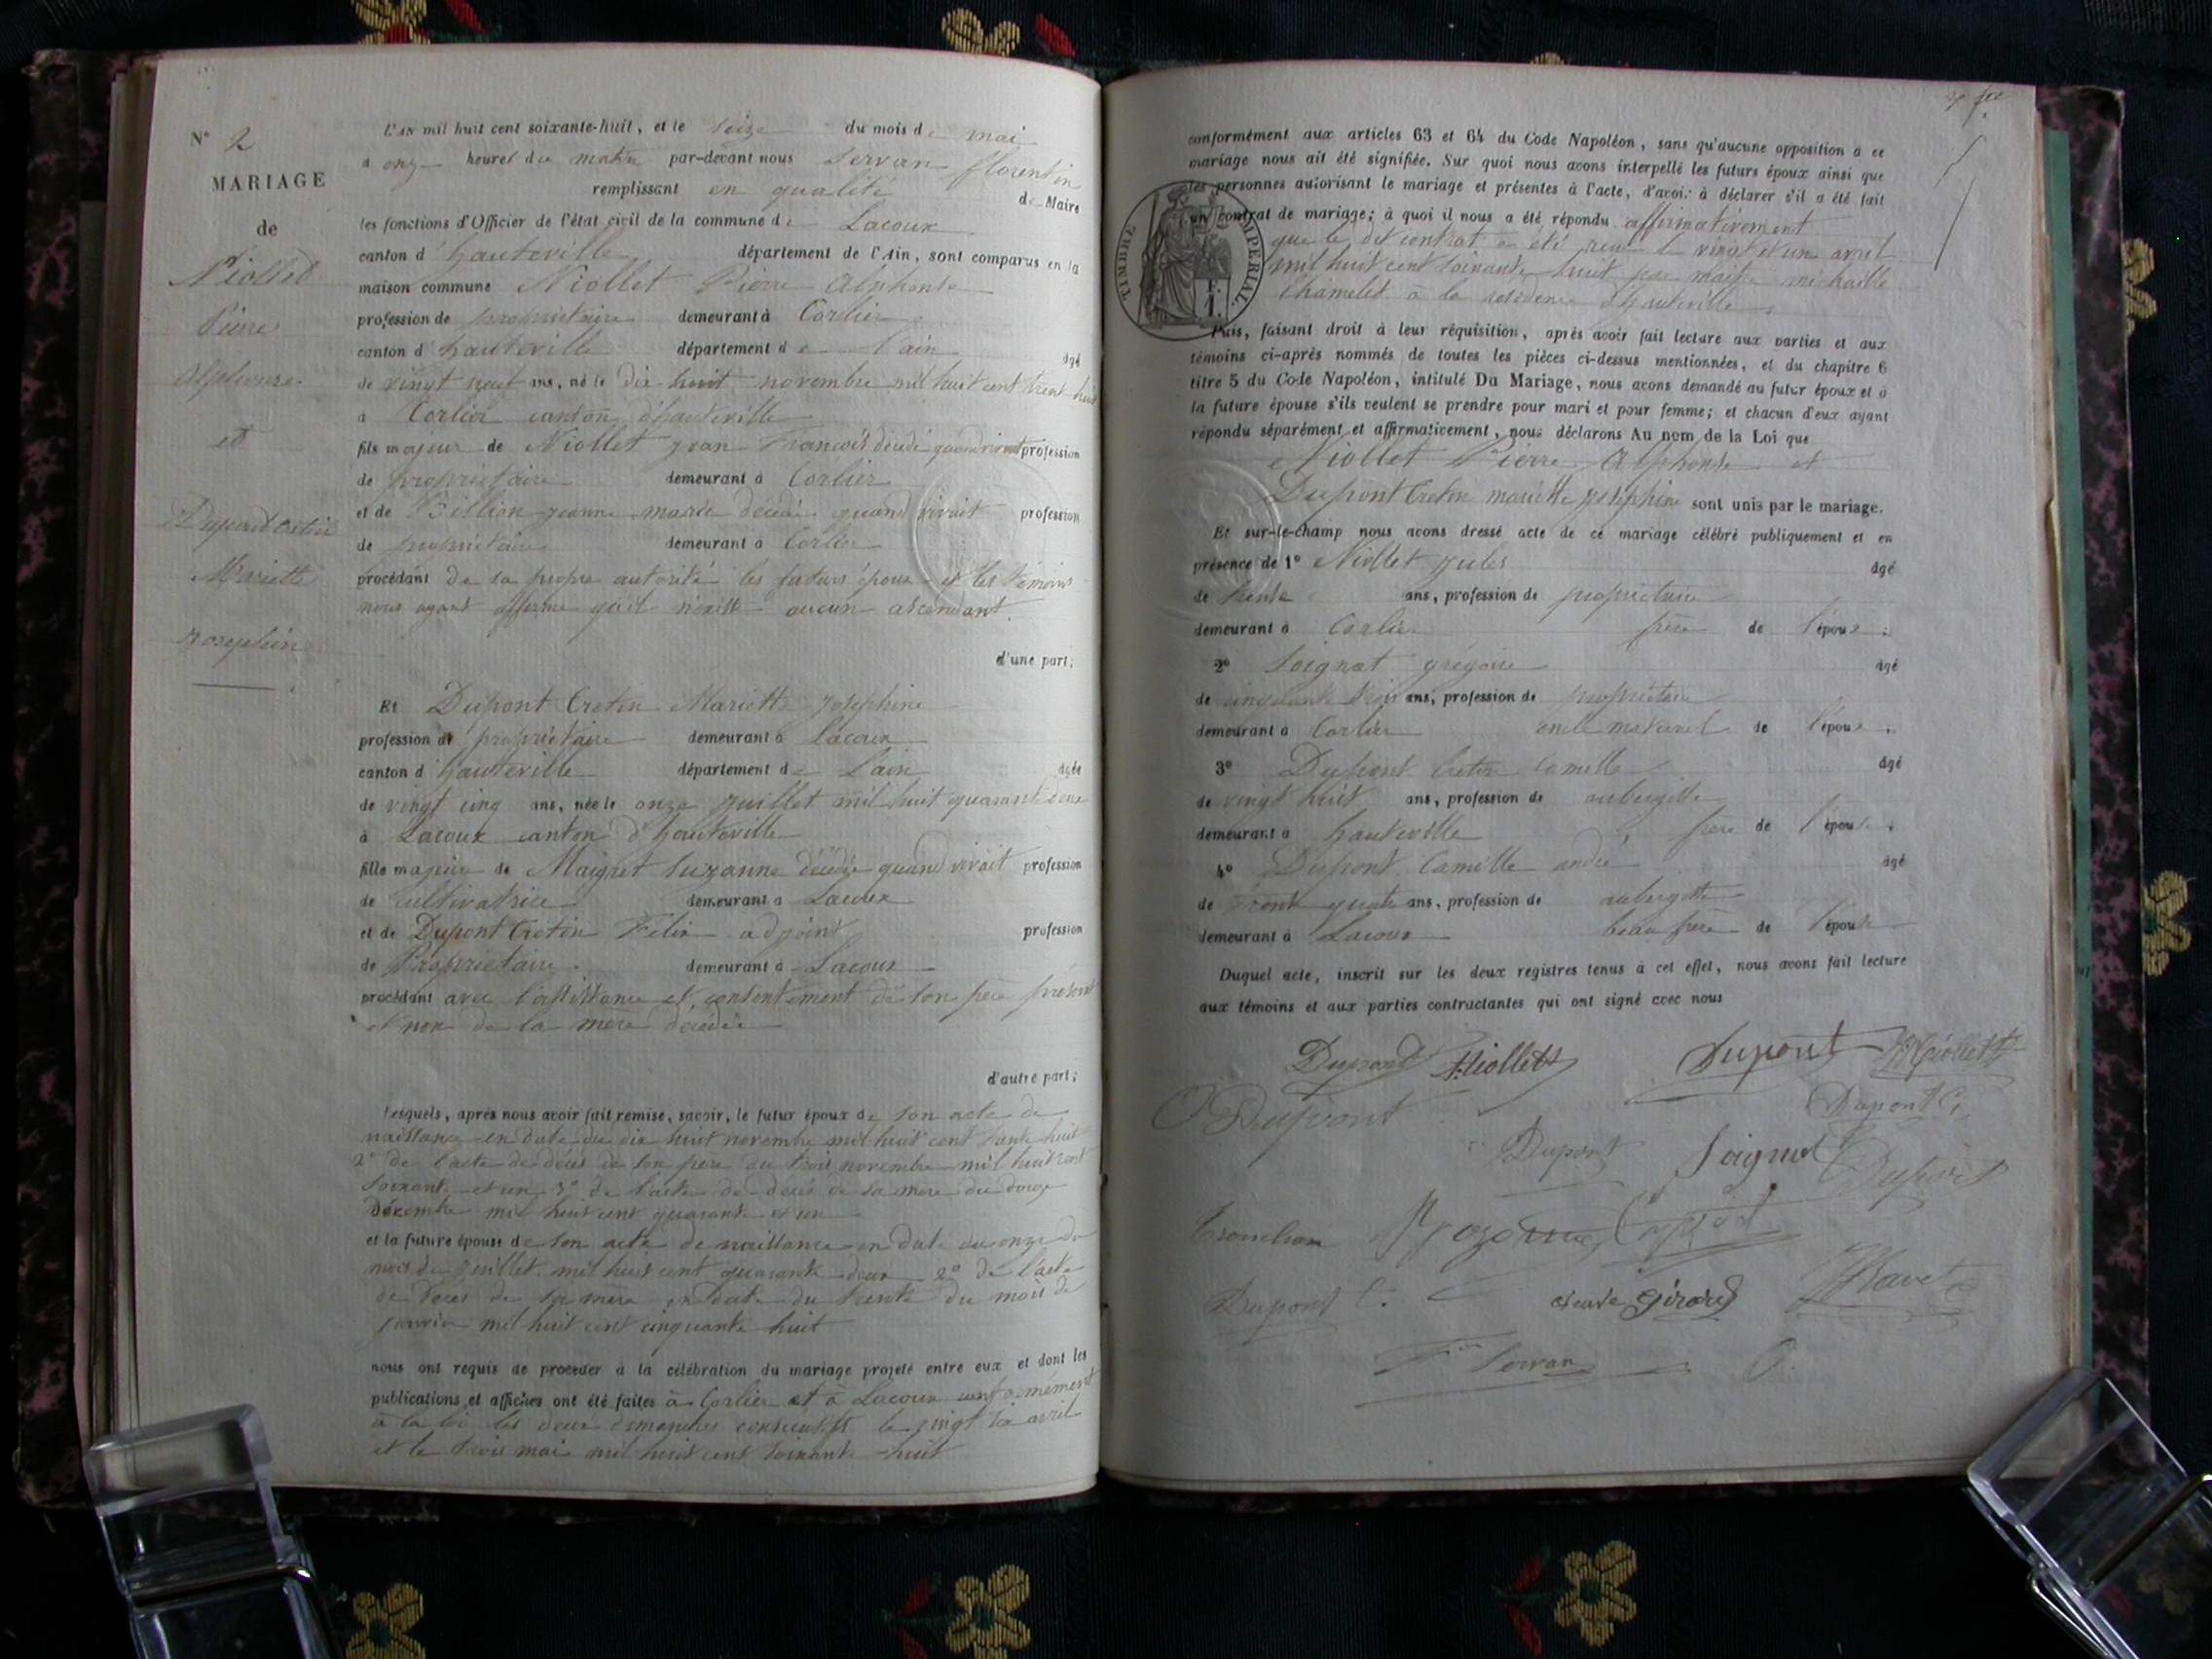 N° 2
MARIAGE
de
Niollet
Pierre
Alphonse
et
Dupont Cretin
Mariette
Josephine
L'AN mil huit cent soixante-huit, et le seize du mois de mai
à onze heures du matin par-devant nous Servan florentin
remplissant en qualité de Maire
les fonctions d'Officier de l'état civil de la commune de Lacoux
canton d'hauteville département de l'Ain, sont comparus en la
maison commune Niollet Pierre Alphonse
profession de propriétaire demeurant à Corlier
canton d'hauteville département de l'ain âgé
de vingt neuf ans, né le dix huit novembre mil huit cent trente huit
à Corlier canton d'hauteville
fils majeur de Niollet jean François décédé quand vivait profession
de propriétaire demeurant à Corlier
et de Billion jeanne marie décédée quand vivait profession
de propriétaire demeurant à Corlier
procédant de sa propre autorité les futurs époux et les témoins
nous ayant affirmé qu'il n'existe aucun ascendant.
d'une part;
Et Dupont Cretin Mariette Josephine
profession de propriétaire demeurant à Lacoux
canton d'hauteville département de l'ain âgée
de vingt cinq ans, née le onze juillet mil huit quarante deux
à Lacoux canton d'hauteville
fille majeure de Maigret Suzanne décédée quand vivait profession
de cultivatrice demeurant à Lacoux
et de Dupont Cretin Félix adjoint profession
de Propriétaire demeurant à Lacoux
procédant avec l'assistance et consentement de son père présent
et non de la mère décédée
d'autre part;
Lesquels, après nous avoir fait remise, savoir, le futur époux de son acte de
naissance en date du dix huit novembre mil huit cent trente huit
2° de l'acte de décès de son père du trois novembre mil huit cent
soixante et un 3° de l'acte de décès de sa mère du douze
Décembre mil huit cent quarante et un
et la future épouse de son acte de naissance en date du onze du
mois de juillet mil huit cent quarante deux 2° de l'acte
de décès de sa mère en date du trente du mois de
janvier mil huit cent cinquante huit
nous ont requis de procéder à la célébration du mariage projeté entre eux et dont les
publications et affiches ont été faites à Corlier et à Lacoux conformément
à la loi les deux dimanches consécutifs le vingt six avril
et le trois mai mil huit cent soixante huit
conformément aux articles 63 et 64 du Code Napoléon, sans qu'aucune opposition à ce
mariage nous ait été signifiée. Sur quoi nous avons interpellé les futurs époux ainsi que
les personnes autorisant le mariage et présentes à l'acte, d'avoir à déclarer s'il a été fait
un contrat de mariage; à quoi il nous a été répondu affirmativement
que le dit contrat a été reçu le vingt et un avril
mil huit cent soixante huit par maître michaille
Chamelet à la résidence d'hauteville
TIMBRE IMPERIAL
1 F.
Puis, faisant droit à leur réquisition, après avoir fait lecture aux parties et aux
témoins ci-après nommés de toutes les pièces ci-dessus mentionnées, et du chapitre 6
titre 5 du Code Napoléon, intitulé Du Mariage, nous avons demandé au futur époux et à
la future épouse s'ils veulent se prendre pour mari et pour femme; et chacun d'eux ayant
répondu séparément et affirmativement, nous déclarons Au nom de la Loi que
Niollet Pierre Alphonse et
Dupont Cretin mariette josephine sont unis par le mariage.
Et sur-le-champ nous avons dressé acte de ce mariage célébré publiquement et en
présence de 1° Niollet jules âgé
de trente ans, profession de propriétaire
demeurant à Corlier frère de l'époux;
2° Soignat grégoire âgé
de cinquante trois ans, profession de propriétaire
demeurant à Corlier oncle maternel de l'époux.
3° Dupont Cretin Camille âgé
de vingt huit ans, profession de aubergiste
demeurant à hauteville frère de l'épouse.
4° Dupont Camille andré âgé
de trente quatre ans, profession de aubergiste
demeurant à Lacoux beau frère de l'épouse
Duquel acte, inscrit sur les deux registres tenus à cet effet, nous avons fait lecture
aux témoins et aux parties contractantes qui ont signé avec nous
Dupont Niollet Dupont Niollet
Dupont Dupont C.
Dupont Soignat Dupont
Dupont C. veuve Girard Navet
Servan